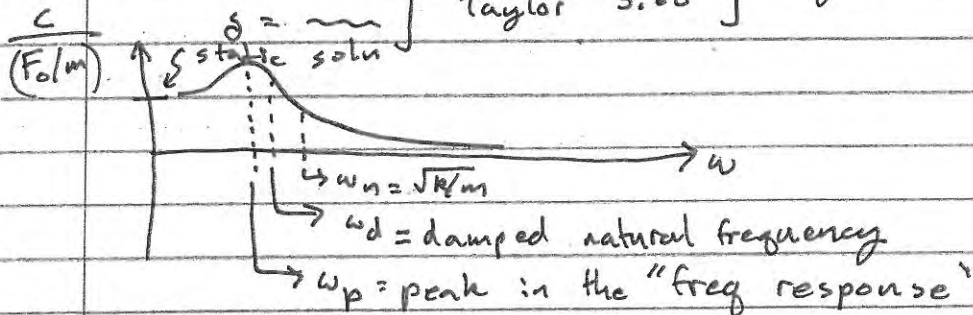 δ = ] Taylor 5.68 ]
C
(F₀/m)
static soln
ω
ωn = √k/m
ωd = damped natural frequency
ωp = peak in the "freq response"